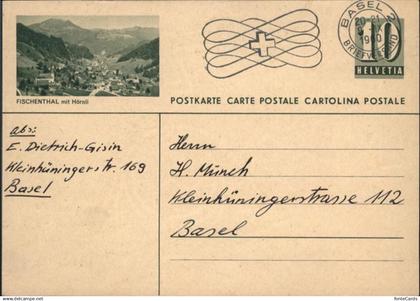 BASEL 2
20-21
1940
BRIEFVERSAND
10
HELVETIA
FISCHENTHAL mit Hörnli
POSTKARTE CARTE POSTALE CARTOLINA POSTALE
abs:
E. Dietrich-Gisin
Kleinhüningerstr. 169
Basel
Herrn
H. Münch
Kleinhüningerstrasse 112
Basel